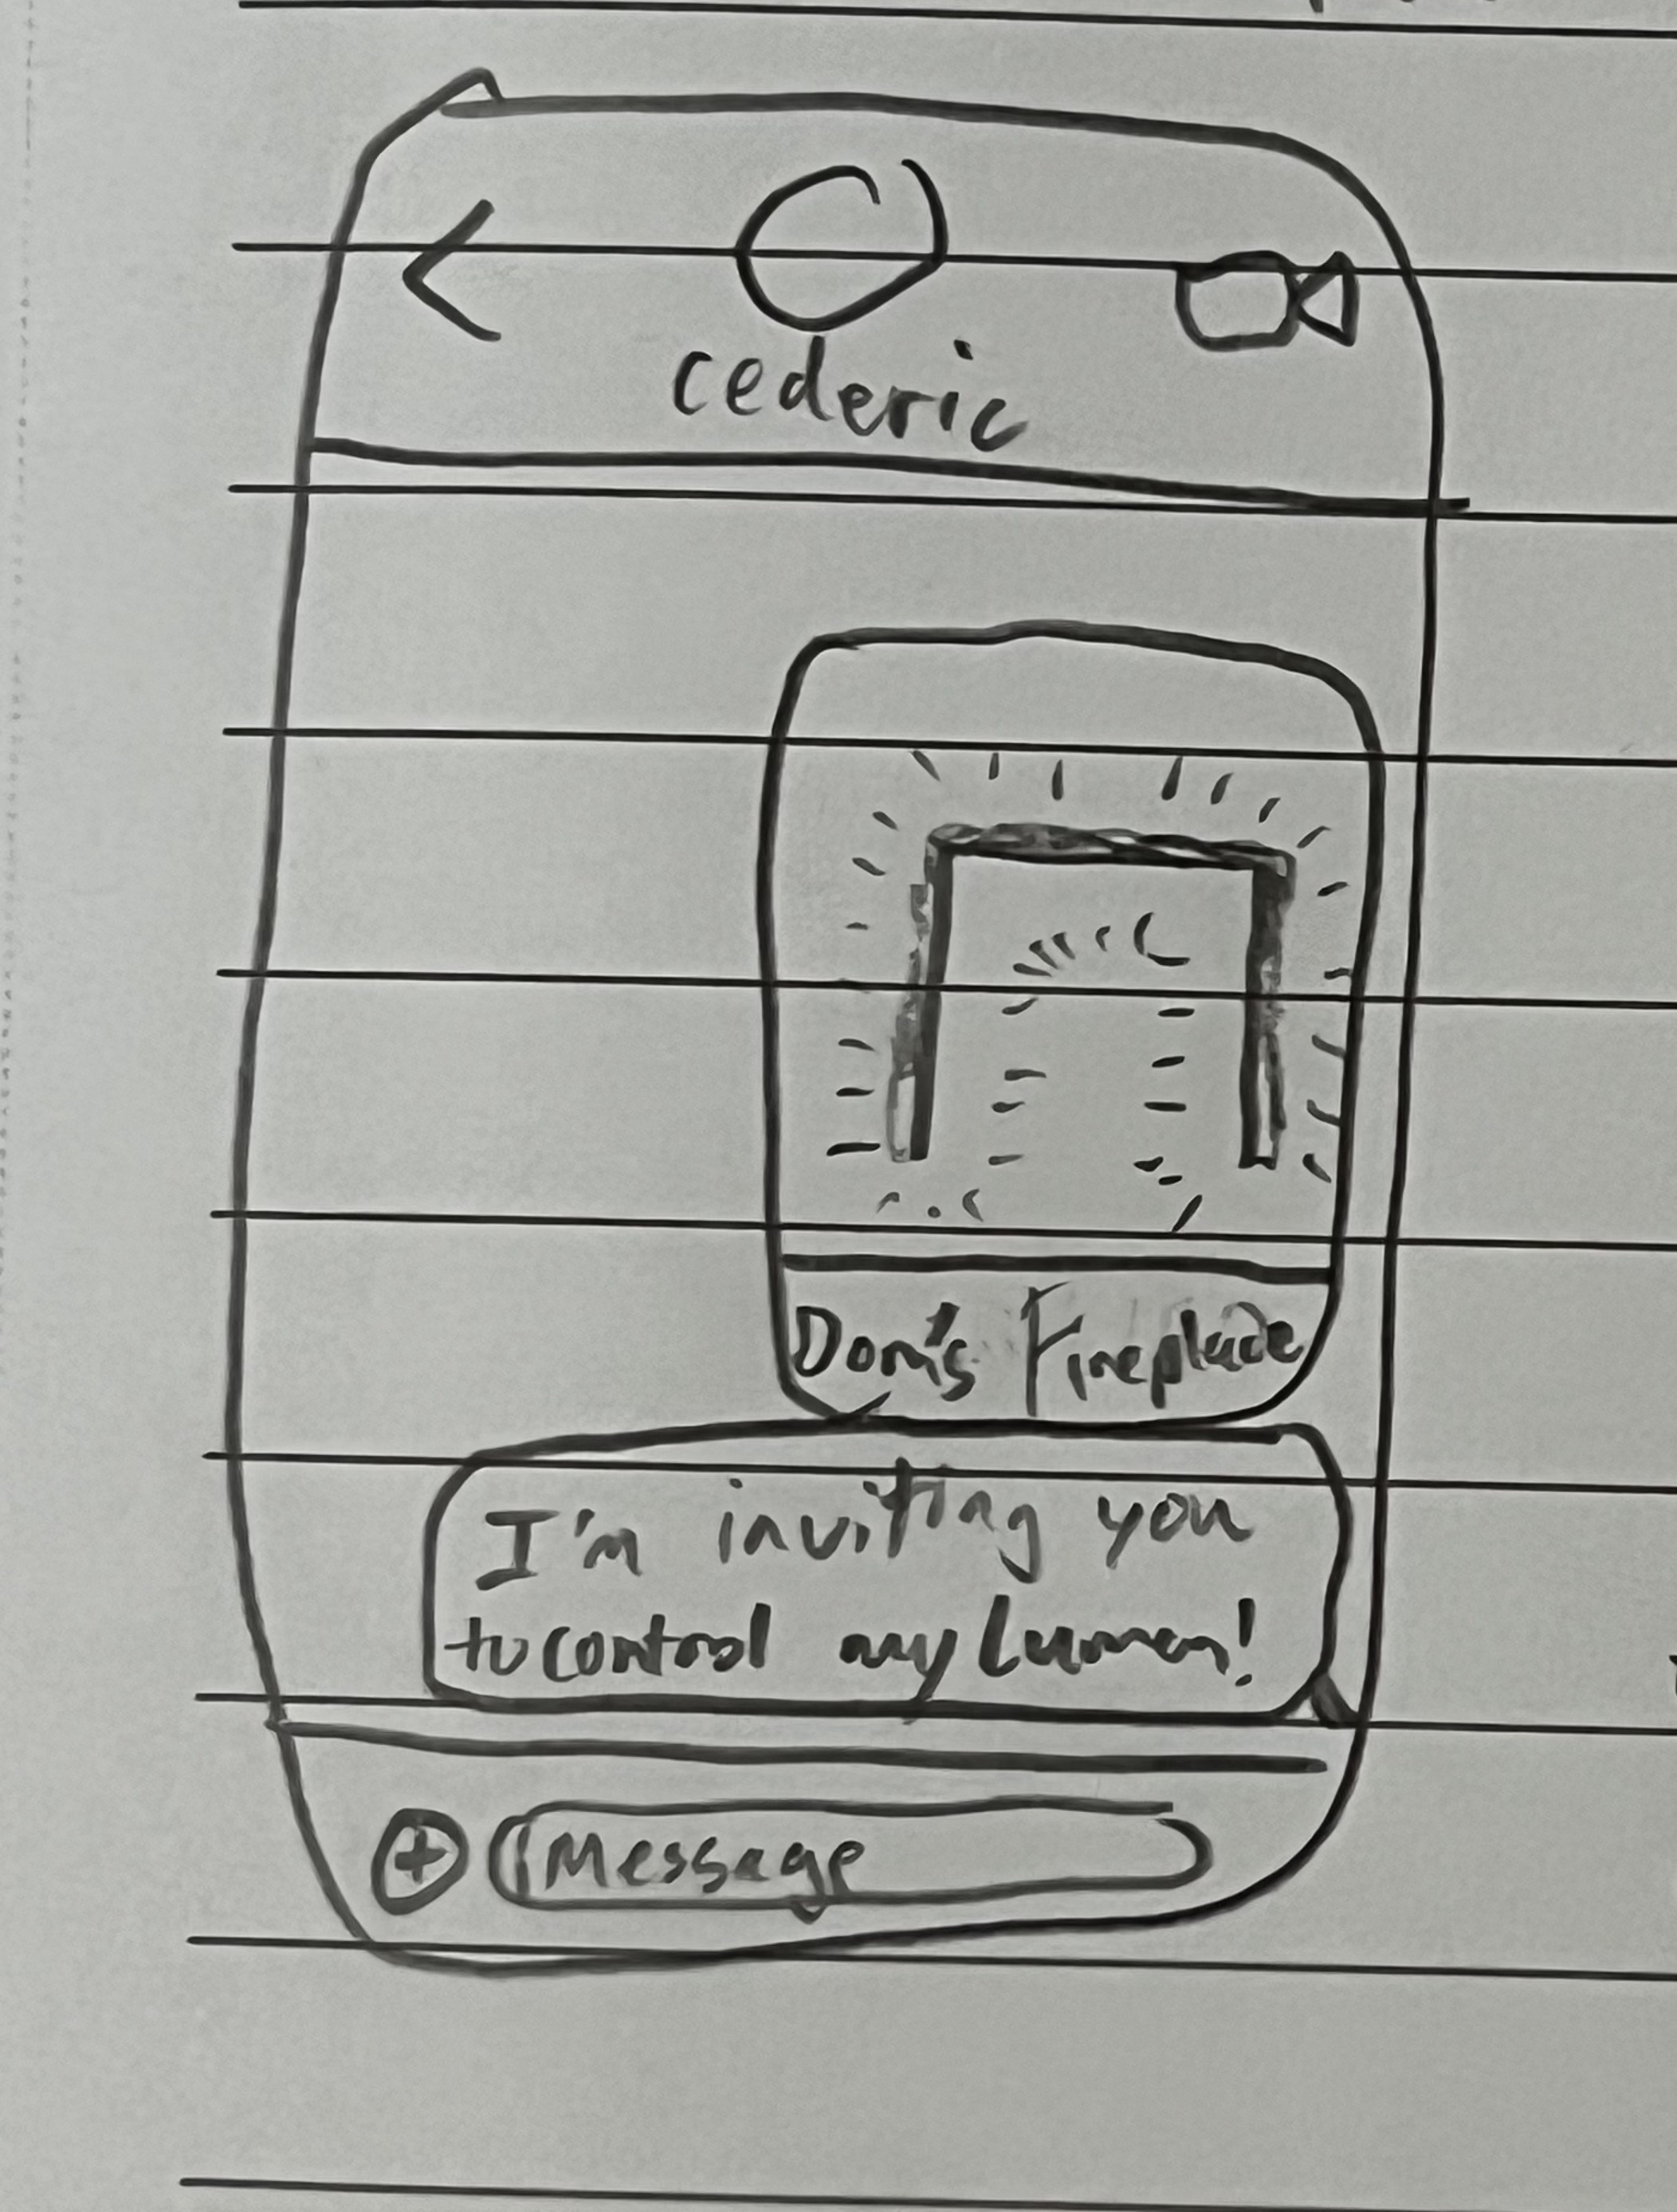 cederic
Dom's Fireplace
I'm inviting you
to control my Lumen!
Message